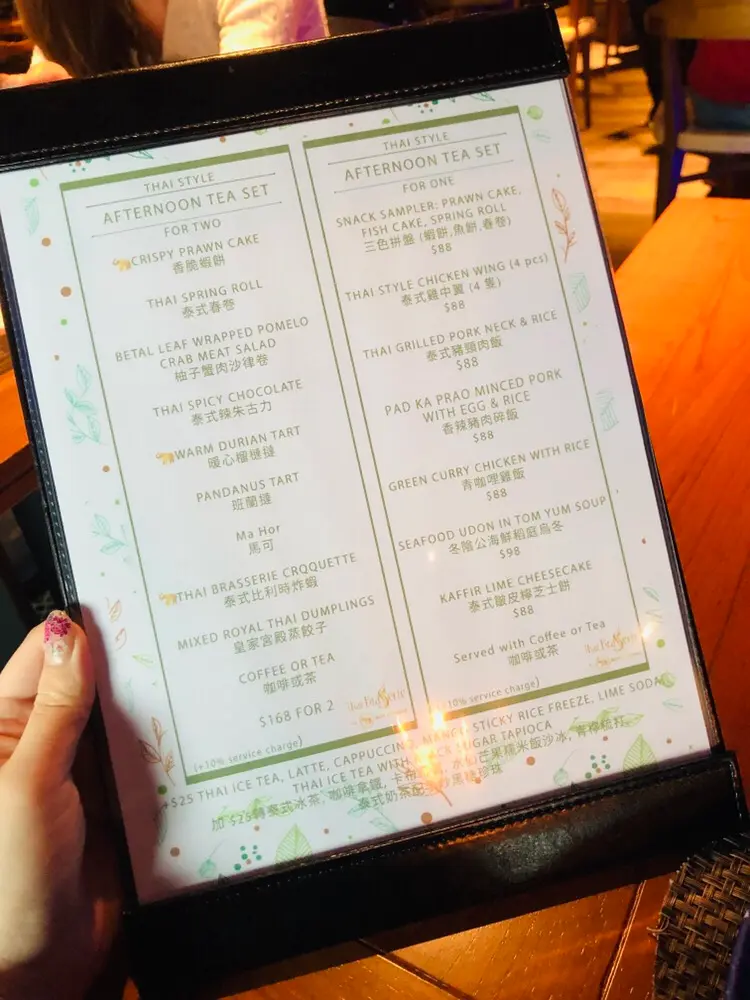 THAI STYLE
AFTERNOON TEA SET
FOR TWO
CRISPY PRAWN CAKE
香脆蝦餅
THAI SPRING ROLL
泰式春卷
BETAL LEAF WRAPPED POMELO
CRAB MEAT SALAD
柚子蟹肉沙律卷
THAI SPICY CHOCOLATE
泰式辣朱古力
WARM DURIAN TART
暖心榴槤撻
PANDANUS TART
班蘭撻
Ma Hor
馬可
THAI BRASSERIE CROQUETTE
泰式比利時炸蝦
MIXED ROYAL THAI DUMPLINGS
皇家宮殿蒸餃子
COFFEE OR TEA
咖啡或茶
$168 FOR 2
(+10% service charge)
THAI STYLE
AFTERNOON TEA SET
FOR ONE
SNACK SAMPLER: PRAWN CAKE,
FISH CAKE, SPRING ROLL
三色拼盤 (蝦餅,魚餅,春卷)
$88
THAI STYLE CHICKEN WING (4 pcs)
泰式雞中翼 (4 隻)
$88
THAI GRILLED PORK NECK & RICE
泰式豬頸肉飯
$88
PAD KA PRAO MINCED PORK
WITH EGG & RICE
香辣豬肉碎飯
$88
GREEN CURRY CHICKEN WITH RICE
青咖哩雞飯
$88
SEAFOOD UDON IN TOM YUM SOUP
冬陰公海鮮稻庭烏冬
$98
KAFFIR LIME CHEESECAKE
泰式皺皮檸芝士餅
$88
Served with Coffee or Tea
咖啡或茶
(+10% service charge)
+$25 THAI ICE TEA, LATTE, CAPPUCCINO, MANGO STICKY RICE FREEZE, LIME SODA,
THAI ICE TEA WITH BLACK SUGAR TAPIOCA
加 $25轉泰式冰茶, 咖啡拿鐵, 芒果糯米飯沙冰, 青檸梳打,
泰式奶茶 黑糖珍珠